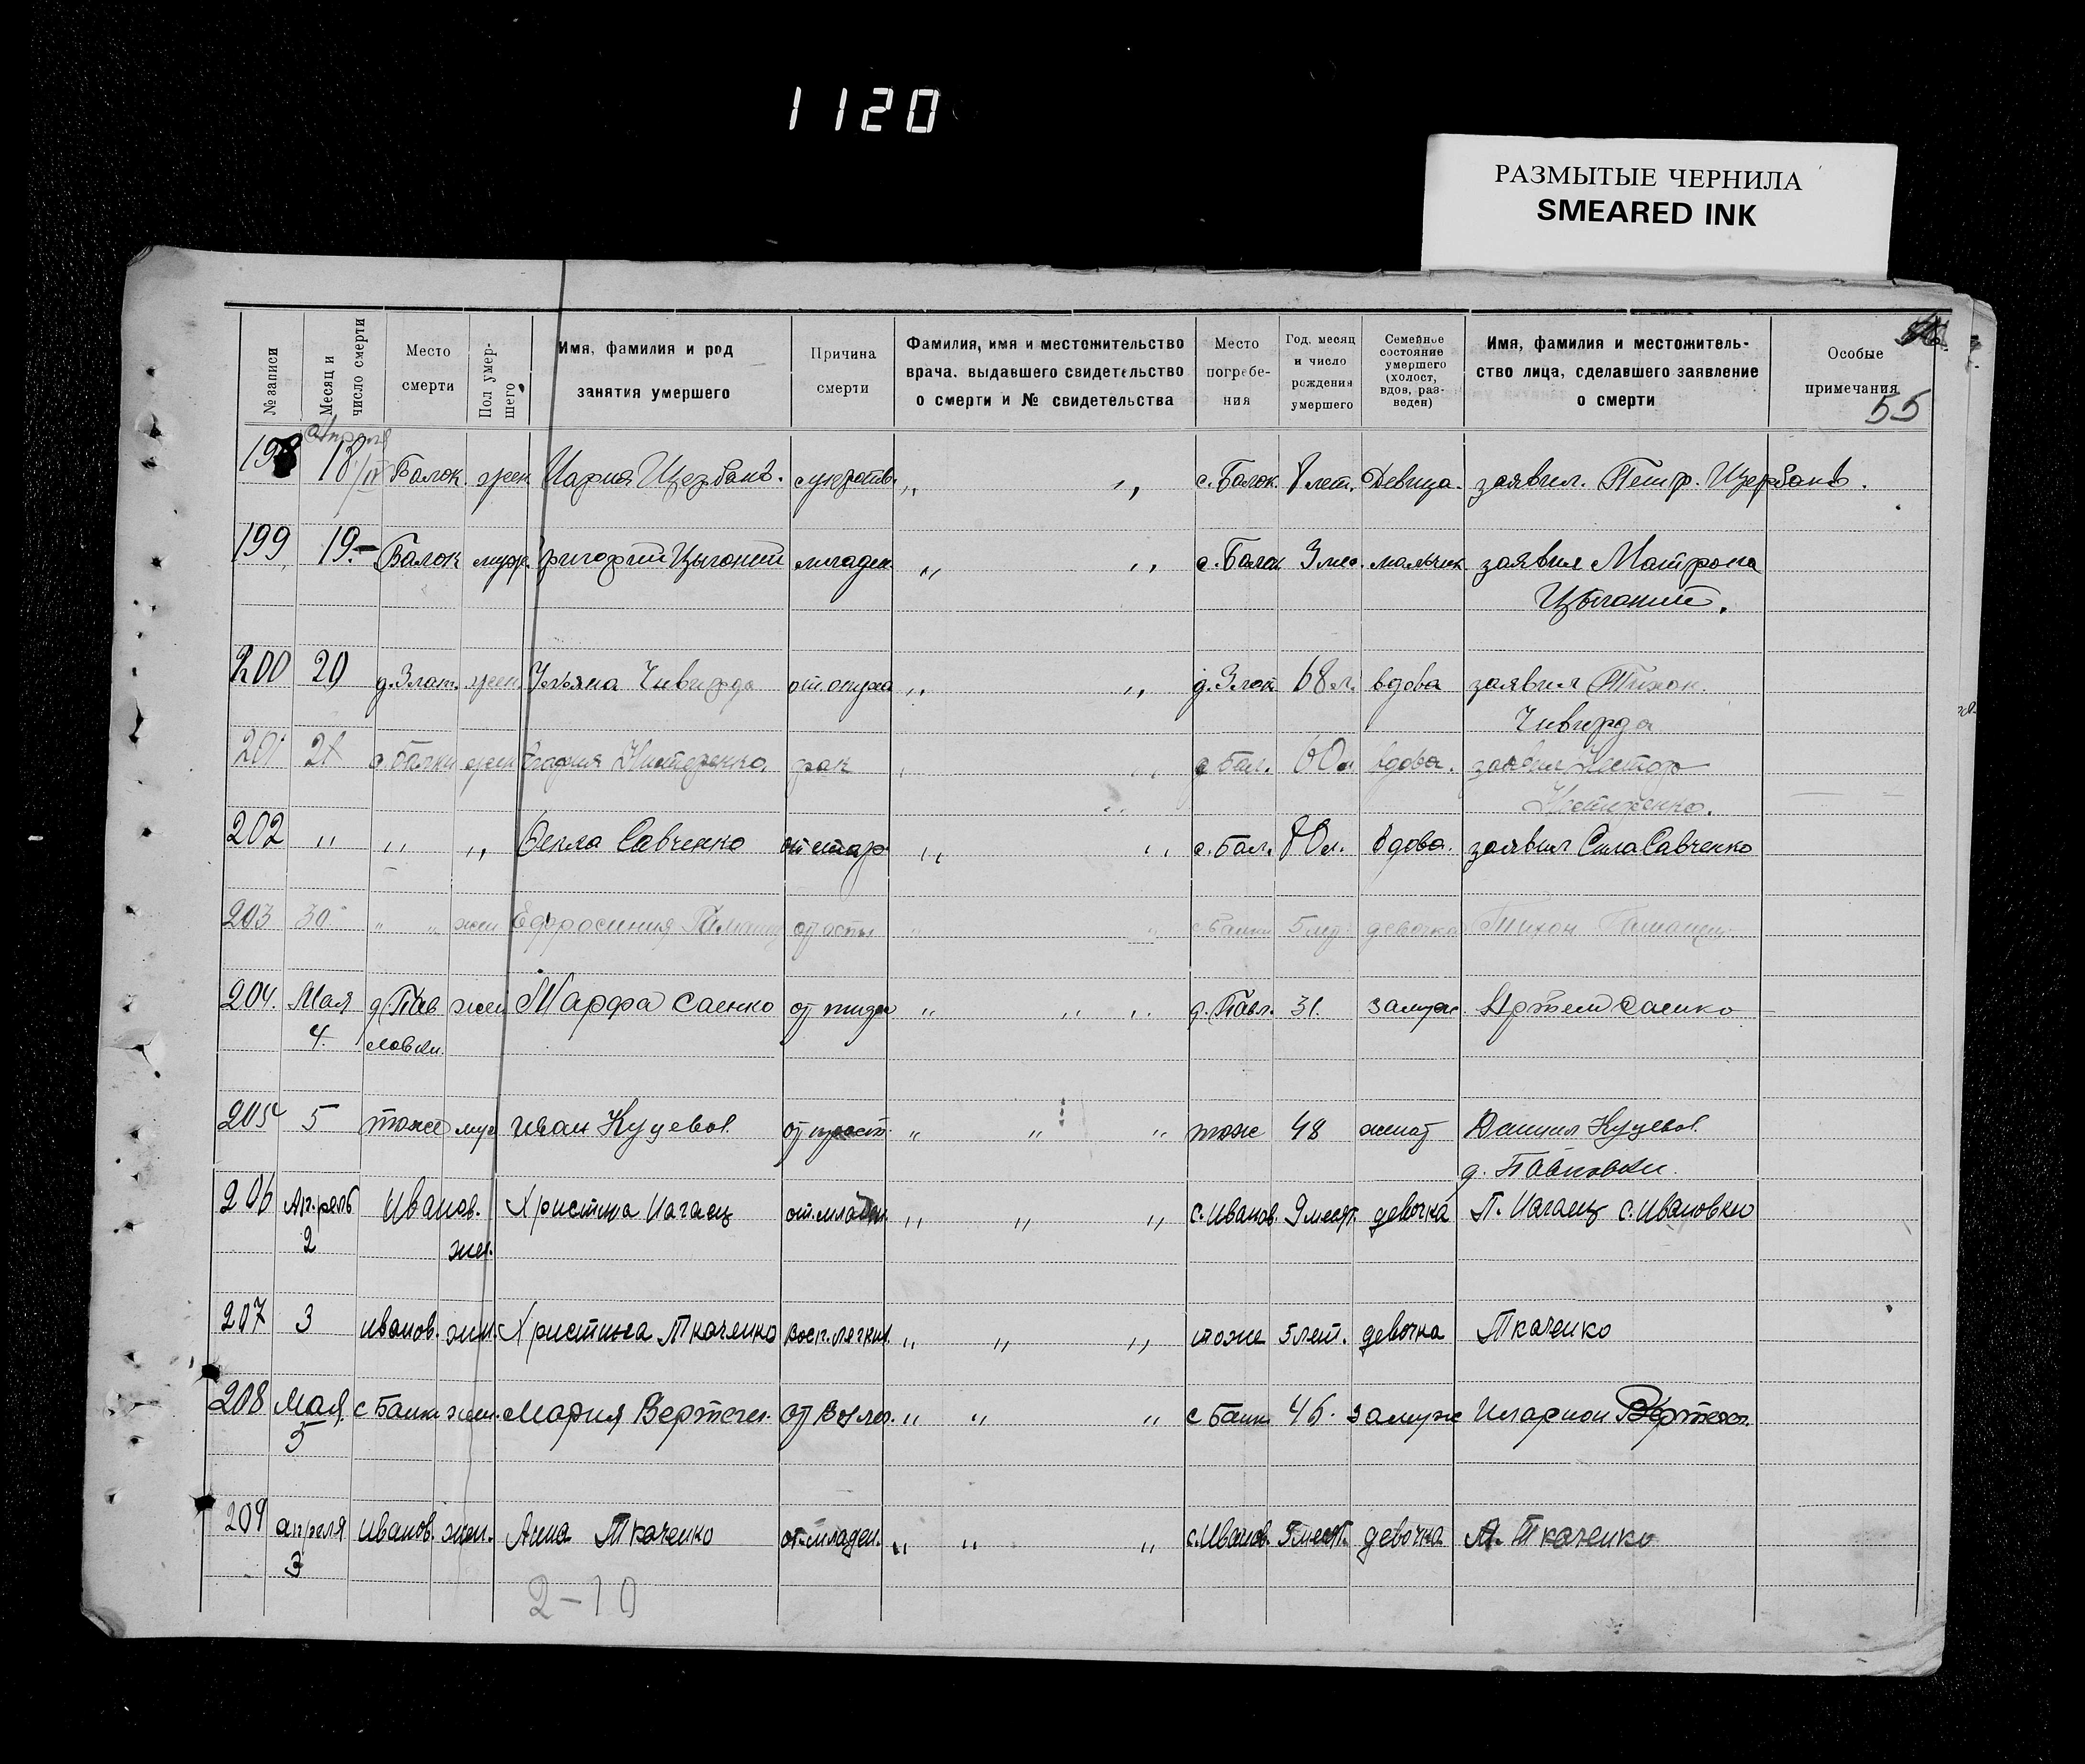 1120
РАЗМЫТЫЕ ЧЕРНИЛА
SMEARED INK
№ записи
Месяц и число смерти
Место смерти
Пол умершего
Имя, фамилия и род занятия умершего
Причина смерти
Фамилия, имя и местожительство врача, выдавшего свидетельство о смерти и № свидетельства
Место погребе-ния
Год, месяц и число рождения умершего
Семейное состояние умершего (холост, вдов, раз-веден)
Имя, фамилия и местожитель-ство лица, сделавшего заявление о смерти
Особые примечания
55
апреля
198 18/IV Балок жен Мария Щербань. ,, ,, с. Балок. 8 лет. Девица. заявил. Петр. Щербань.
199 19.— Балок муж. Григорий Цыганий младен. ,, ,, с. Балок 3 мес. мальчик заявил Матрона
Цыганий.
200 20 д. Злат. жен. Ульяна Чивирда от опуха ,, ,, д. Злат. 68 л. вдова заявил Тихон.
Чивирда
201 21 с Балки жен Нестеренко. рак ,, ,, с Бал. 60 л вдова. заявил Нестор
Нестеренко.
202 ,, ,, ,, Фекла Савченко от стар ,, ,, с. Бал. 80 л. вдова. заявил Сила Савченко
203 30 ,, ,, жен Ефросиния от оспы ,, ,, с Балки 5 мец девочка Тихон
204. Мая д. Пав жен Марфа Саенко от ,, ,, ,, д. Павл. 31. замуж Артем Саенко
4. ловки.
205 5 тоже муж Иван Куцевол. от ,, ,, ,, тоже 48 женат Даниил Куцевол.
д. Павловки.
206 Апрель Иванов. Христина Нагаец от младен. ,, ,, ,, с. Иванов. 9 месят. девочка П. Нагаец с. Ивановки
2 жен.
207 3 Иванов. жен. Христина Ткаченко восп. легких. ,, ,, ,, тоже 5 лет. девочка Ткаченко
208 Мая с Балки жен. Мария Вертеч. от ,, ,, ,, с Балки 46. замуж Иларион Вертеч.
5
209 апреля Иванов. жен. Анна Ткаченко от младен. ,, ,, ,, с. Иванов. 5 месят. девочка А. Ткаченко
3
2-10